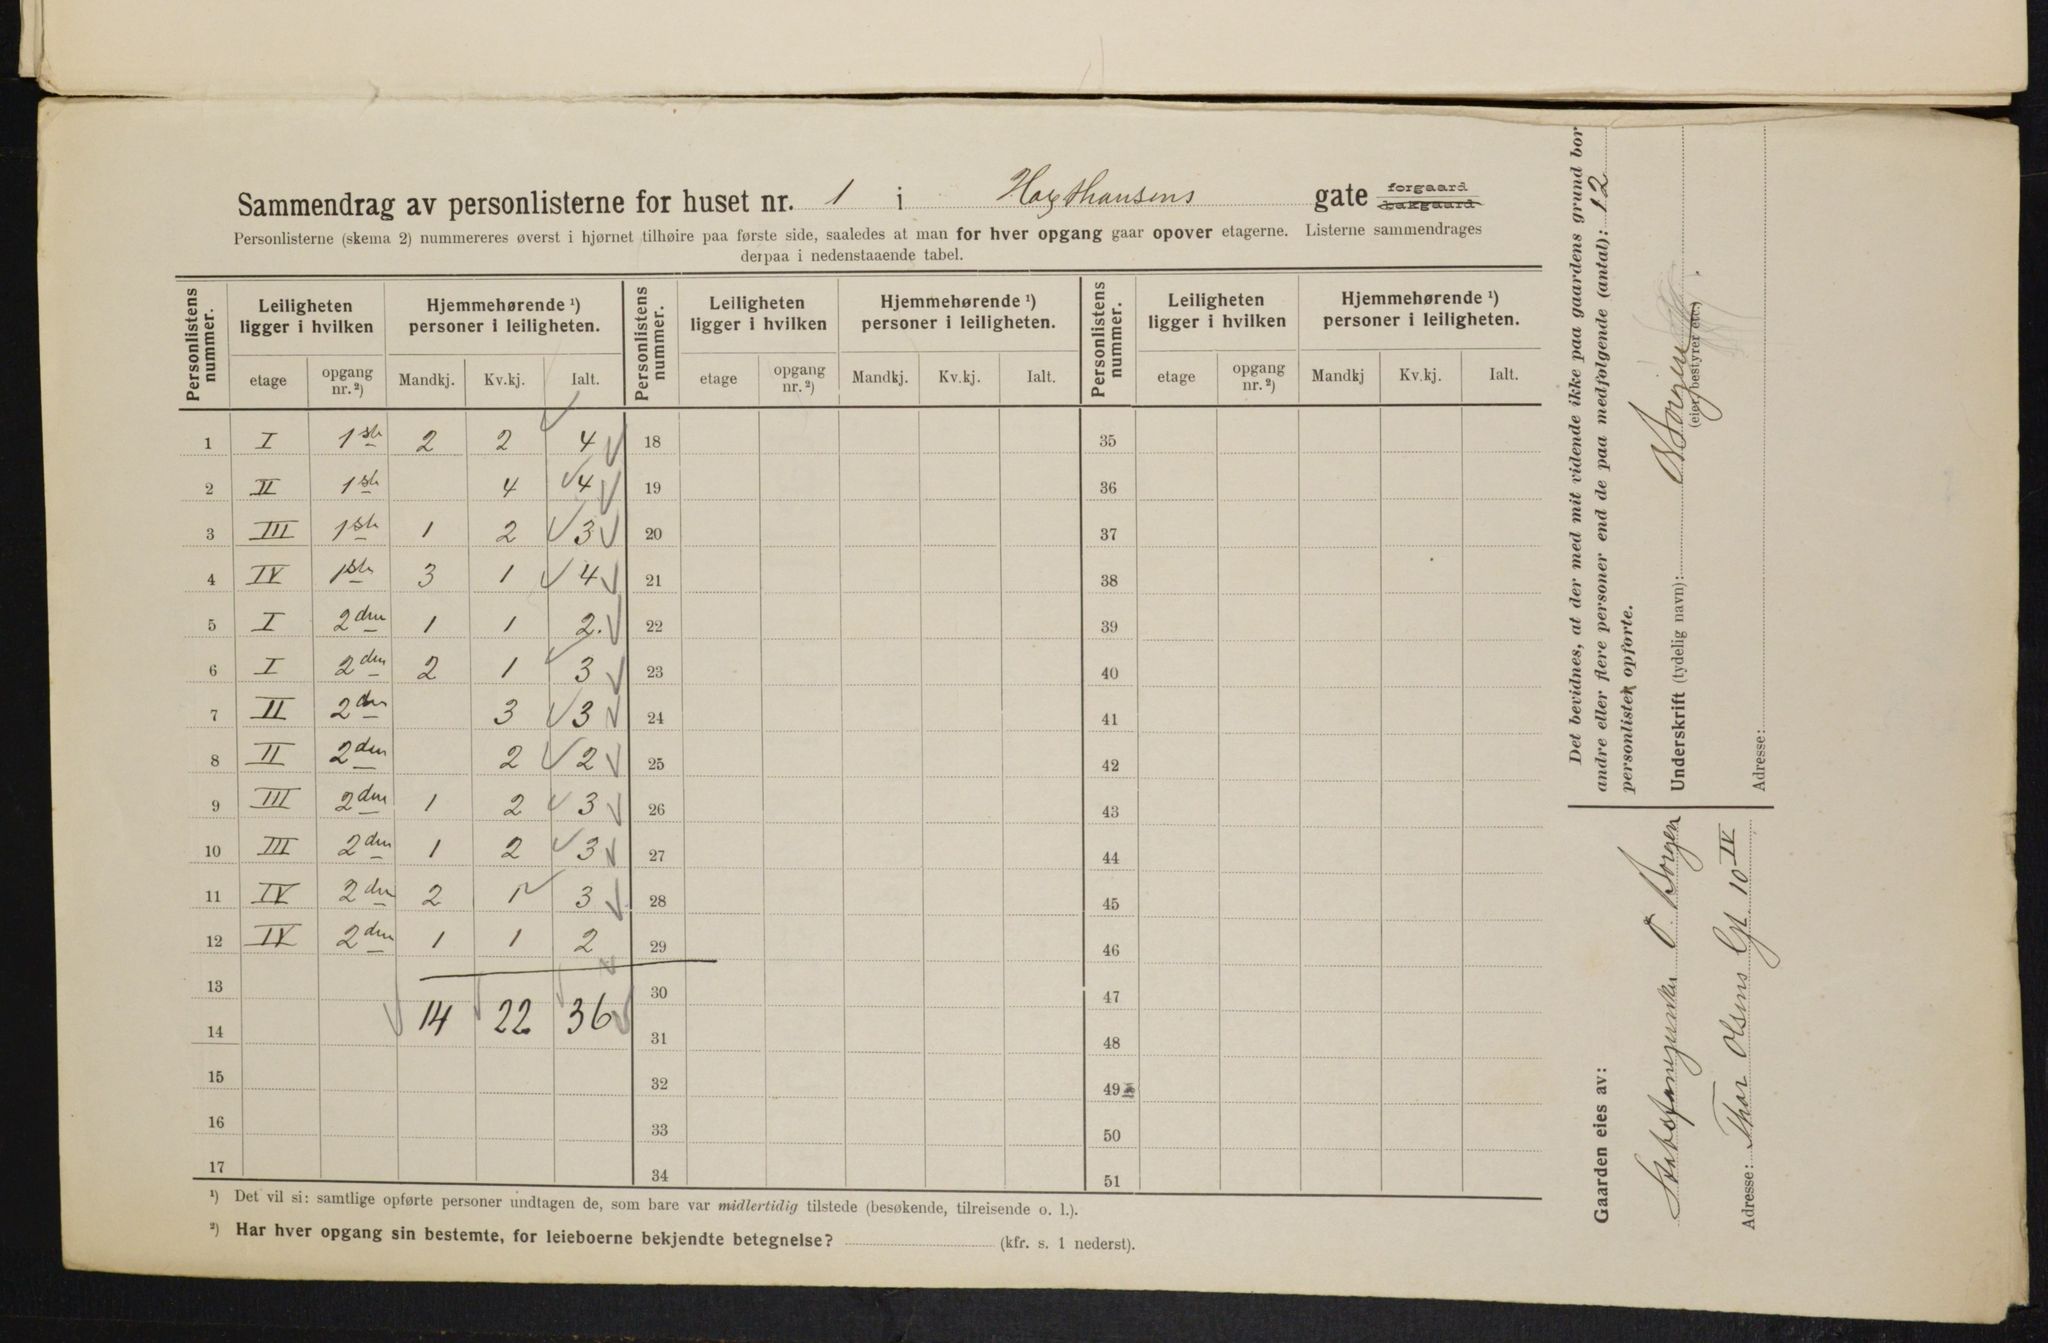 Sammendrag av personlisterne for huset nr. 1 i Haxthausens gate forgaard bakgaard
Personlisterne (skema 2) nummereres øverst i hjørnet tilhøire paa første side, saaledes at man for hver opgang gaar opover etagerne. Listerne sammendrages
derpaa i nedenstaaende tabel.
Personlistens nummer. Leiligheten ligger i hvilken Hjemmehørende ¹) personer i leiligheten. Personlistens nummer. Leiligheten ligger i hvilken Hjemmehørende ¹) personer i leiligheten. Personlistens nummer. Leiligheten ligger i hvilken Hjemmehørende ¹) personer i leiligheten.
etage opgang nr. ²) Mandkj. Kv.kj. Ialt. etage opgang nr. ²) Mandkj. Kv.kj. Ialt. etage opgang nr. ²) Mandkj Kv.kj. Ialt.
1 I 1ste 2 2 4 18 35
2 II 1ste 4 4 19 36
3 III 1ste 1 2 3 20 37
4 IV 1ste 3 1 4 21 38
5 I 2den 1 1 2. 22 39
6 I 2den 2 1 3 23 40
7 II 2den 3 3 24 41
8 II 2den 2 2 25 42
9 III 2den 1 2 3 26 43
10 III 2den 1 2 3 27 44
11 IV 2den 2 1 3 28 45
12 IV 2den 1 1 2 29 46
13 30 47
14 14 22 36 31 48
15 32 49
16 33 50
17 34 51
¹) Det vil si: samtlige opførte personer undtagen de, som bare var midlertidig tilstede (besøkende, tilreisende o. l.).
²) Har hver opgang sin bestemte, for leieboerne bekjendte betegnelse? (kfr. s. 1 nederst).
Det bevidnes, at der med mit vidende ikke paa gaardens grund bor
andre eller flere personer end de paa medfølgende (antal): 12
personlister opførte.
Underskrift (tydelig navn):
(eier, bestyrer etc.)
Adresse:
Gaarden eies av:
O. Borgen
Adresse: Thor Olsens Gt. 10 IV